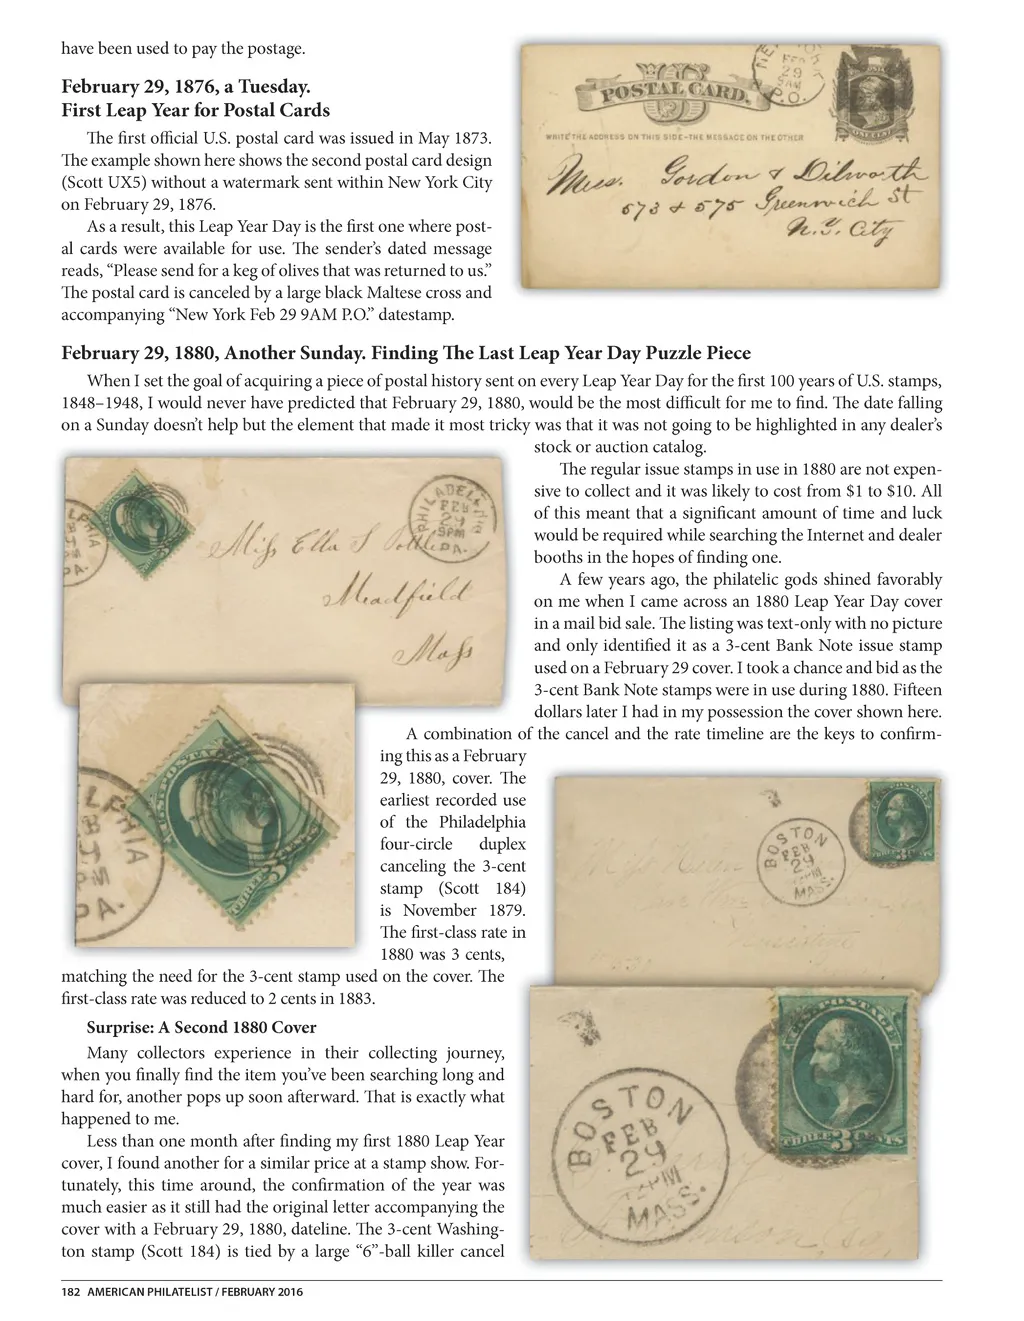 have been used to pay the postage.
February 29, 1876, a Tuesday.
First Leap Year for Postal Cards
The first official U.S. postal card was issued in May 1873.
The example shown here shows the second postal card design
(Scott UX5) without a watermark sent within New York City
on February 29, 1876.
As a result, this Leap Year Day is the first one where post-
al cards were available for use. The sender's dated message
reads, “Please send for a keg of olives that was returned to us.”
The postal card is canceled by a large black Maltese cross and
accompanying “New York Feb 29 9AM P.O.” datestamp.
POSTAL CARD.
WRITE THE ADDRESS ON THIS SIDE-THE MESSAGE ON THE OTHER
NEW YORK
FEB
29
9AM
P.O.
ONE CENT
Mess. Gordon & Dilworth
573 & 575 Greenwich St
N.Y. City
February 29, 1880, Another Sunday. Finding The Last Leap Year Day Puzzle Piece
When I set the goal of acquiring a piece of postal history sent on every Leap Year Day for the first 100 years of U.S. stamps,
1848–1948, I would never have predicted that February 29, 1880, would be the most difficult for me to find. The date falling
on a Sunday doesn't help but the element that made it most tricky was that it was not going to be highlighted in any dealer's
stock or auction catalog.
The regular issue stamps in use in 1880 are not expen-
sive to collect and it was likely to cost from $1 to $10. All
of this meant that a significant amount of time and luck
would be required while searching the Internet and dealer
booths in the hopes of finding one.
A few years ago, the philatelic gods shined favorably
on me when I came across an 1880 Leap Year Day cover
in a mail bid sale. The listing was text-only with no picture
and only identified it as a 3-cent Bank Note issue stamp
used on a February 29 cover. I took a chance and bid as the
3-cent Bank Note stamps were in use during 1880. Fifteen
dollars later I had in my possession the cover shown here.
A combination of the cancel and the rate timeline are the keys to confirm-
ing this as a February
29, 1880, cover. The
earliest recorded use
of the Philadelphia
four-circle duplex
canceling the 3-cent
stamp (Scott 184)
is November 1879.
The first-class rate in
1880 was 3 cents,
matching the need for the 3-cent stamp used on the cover. The
first-class rate was reduced to 2 cents in 1883.
PHILADELPHIA
FEB
29
9PM
PA.
Miss Ella S
Meadfield
Mass
LPHIA
PM
PA.
THREE
Surprise: A Second 1880 Cover
Many collectors experience in their collecting journey,
when you finally find the item you've been searching long and
hard for, another pops up soon afterward. That is exactly what
happened to me.
Less than one month after finding my first 1880 Leap Year
cover, I found another for a similar price at a stamp show. For-
tunately, this time around, the confirmation of the year was
much easier as it still had the original letter accompanying the
cover with a February 29, 1880, dateline. The 3-cent Washing-
ton stamp (Scott 184) is tied by a large “6”-ball killer cancel
BOSTON
FEB
29
12PM
MASS.
3 CENTS
BOSTON
FEB
29
12PM
MASS.
U.S. POSTAGE
THREE 3 CENTS
182 AMERICAN PHILATELIST / FEBRUARY 2016